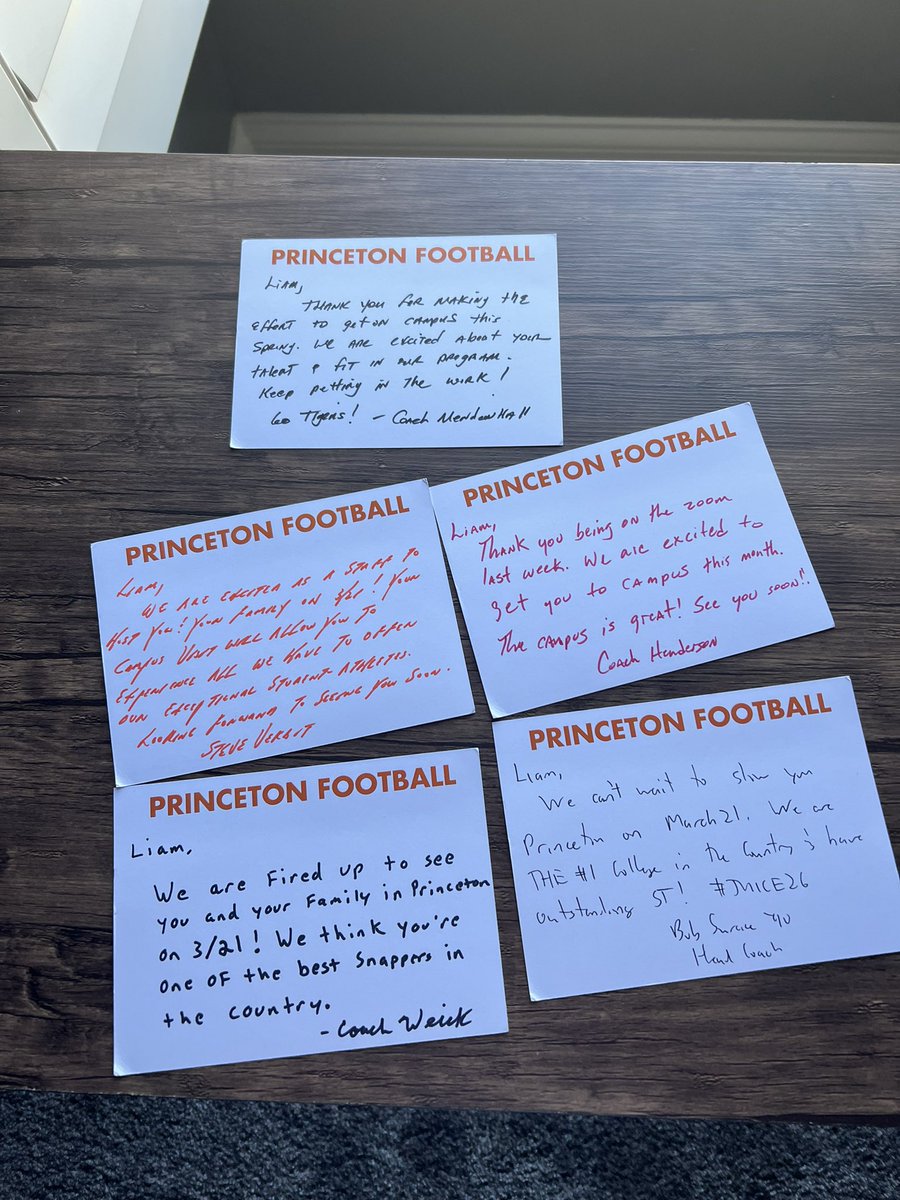 PRINCETON FOOTBALL
Liam,
THANK you for making the
effort to get on campus this
spring. We are excited about your
talent & fit in our program.
Keep putting in the work!
Go Tigers! - Coach Mendenhall
PRINCETON FOOTBALL
Liam,
We are excited as a staff to
host you! Your family on 3/21! Your
campus visit will allow you to
experience all we have to offer
our exceptional student-athletes.
Looking forward to seeing you soon.
Steve Verbit
PRINCETON FOOTBALL
Liam,
Thank you being on the zoom
last week. We are excited to
get you to campus this month.
The campus is great! See you soon!!
Coach Henderson
PRINCETON FOOTBALL
Liam,
We are Fired up to see
you and your Family in Princeton
on 3/21! We think you're
one of the best snappers in
the country.
- Coach Weick
PRINCETON FOOTBALL
Liam,
We can't wait to show you
Princeton on March 21. We are
THE #1 College in the Country & have
outstanding ST! #JUICE26
Bob Surace '90
Head Coach